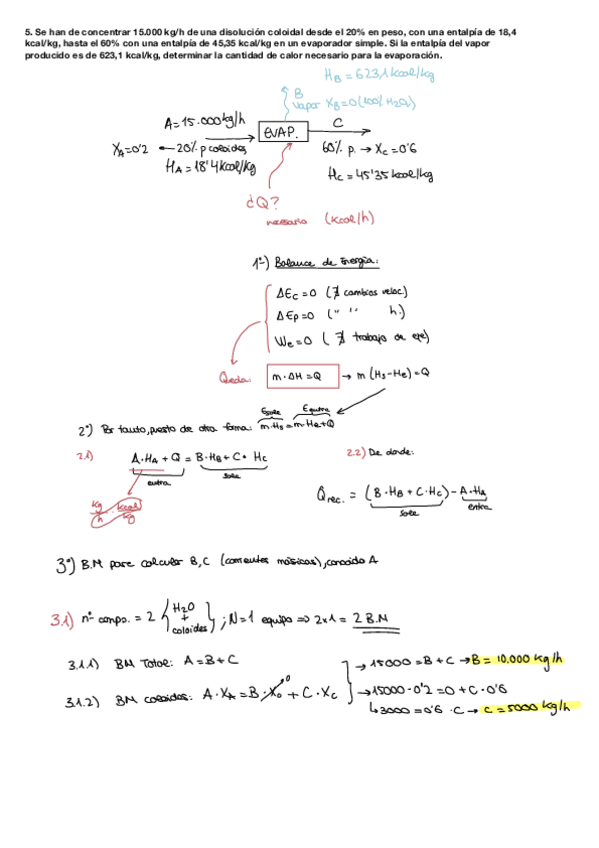 5. Se han de concentrar 15.000 kg/h de una disolución coloidal desde el 20% en peso, con una entalpía de 18,4
kcal/kg, hasta el 60% con una entalpía de 45,35 kcal/kg en un evaporador simple. Si la entalpía del vapor
producido es de 623,1 kcal/kg, determinar la cantidad de calor necesario para la evaporación.
H_B = 623,1 kcal/kg
B
vapor X_B=0 (100% H₂O)
A=15.000 kg/h
EVAP.
C
X_A=0'2 ← 20% p coloides
60% p. → X_C=0'6
H_A = 18'4 kcal/kg
H_C = 45'35 kcal/kg
¿Q?
necesario (kcal/h)
1º) Balance de Energía:
ΔE_C = 0 (∄ cambios veloc.)
ΔE_P = 0 (" " h.)
W_e = 0 (∄ trabajo de eje)
Queda: m·ΔH = Q → m (H_S-H_e) = Q
Esale Eentra
2º) Por tanto, puesto de otra forma: m·H_S = m·H_e+Q
2.1) A·H_A + Q = B·H_B + C·H_C
entra sale
kg/h · kcal/kg
2.2) De donde:
Q_rec. = (B·H_B + C·H_C) - A·H_A
sale entra
3º) B.M para calcular B, C (corrientes másicas), conocido A
3.1) nº compo. = 2 { H₂O + coloides } ; N=1 equipo ⇒ 2x1 = 2 B.M
3.1.1) BM Total: A = B + C → 15000 = B + C → B = 10.000 kg/h
3.1.2) BM coloides: A·X_A = B·X_0⁰ + C·X_C → 15000·0'2 = 0 + C·0'6
↳ 3000 = 0'6 · C → C = 5000 kg/h